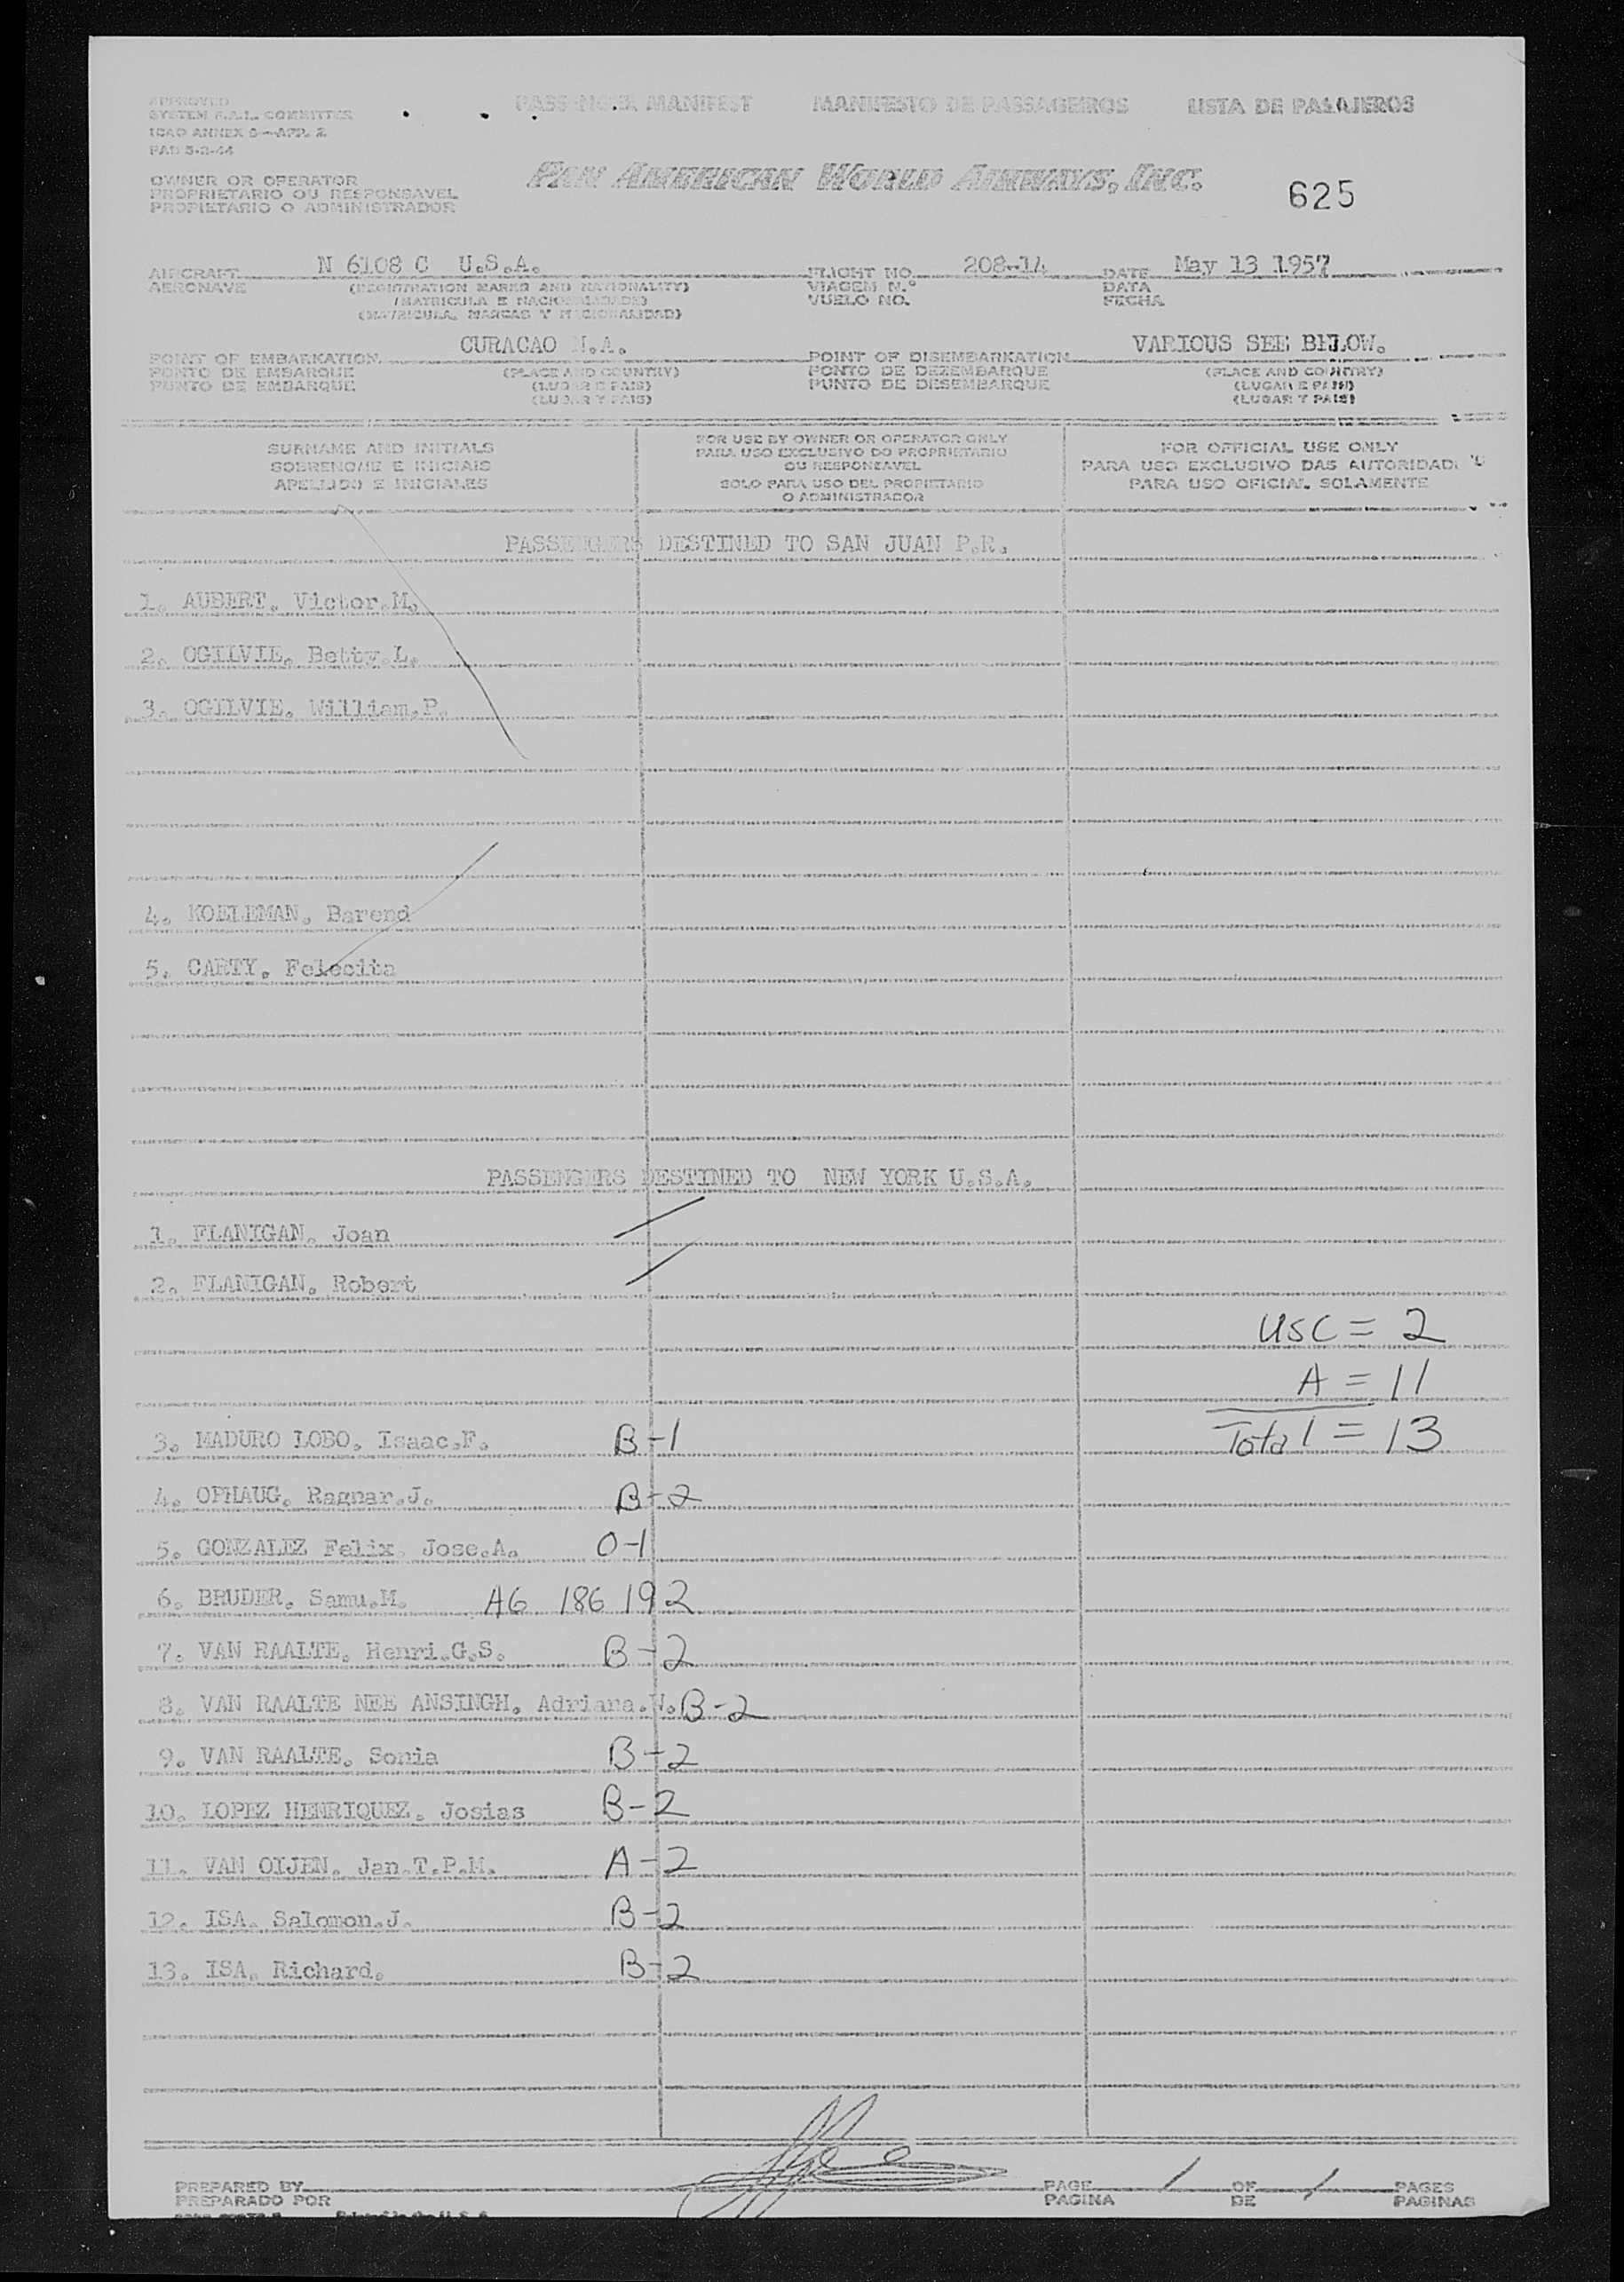 APPROVED
SYSTEM F.A.L. COMMITTEE
ICAO ANNEX 9—APP. 2
PAD 5-2-44
PASSENGER MANIFEST MANIFESTO DE PASSAGEIROS LISTA DE PASAJEROS
OWNER OR OPERATOR
PROPRIETARIO OU RESPONSAVEL
PROPIETARIO O ADMINISTRADOR
PAN AMERICAN WORLD AIRWAYS, INC.
625
AIRCRAFT N 6108 C U.S.A. FLIGHT NO. 208-14 DATE May 13 1957
AERONAVE (REGISTRATION MARKS AND NATIONALITY) VIAGEM N.° DATA
(MATRICULA E NACIONALIDADE) VUELO NO. FECHA
(MATRICULA, MARCAS Y NACIONALIDAD)
POINT OF EMBARKATION CURACAO N.A. POINT OF DISEMBARKATION VARIOUS SEE BELOW.
PONTO DE EMBARQUE (PLACE AND COUNTRY) PONTO DE DEZEMBARQUE (PLACE AND COUNTRY)
PUNTO DE EMBARQUE (LUGAR E PAIS) PUNTO DE DESEMBARQUE (LUGAR E PAIS)
(LUGAR Y PAIS) (LUGAR Y PAIS)
SURNAME AND INITIALS
SOBRENOME E INICIAIS
APELLIDO E INICIALES
FOR USE BY OWNER OR OPERATOR ONLY
PARA USO EXCLUSIVO DO PROPRIETARIO
OU RESPONSAVEL
SOLO PARA USO DEL PROPIETARIO
O ADMINISTRADOR
FOR OFFICIAL USE ONLY
PARA USO EXCLUSIVO DAS AUTORIDADES
PARA USO OFICIAL SOLAMENTE
PASSENGERS DESTINED TO SAN JUAN P.R.
1. AUBERT. Victor.M.
2. OGILVIE. Betty.L.
3. OGILVIE. William.P.
4. KOELEMAN. Barend
5. CARTY. Felecita
PASSENGERS DESTINED TO NEW YORK U.S.A.
1. FLANIGAN. Joan
2. FLANIGAN. Robert
USC = 2
A = 11
Total = 13
3. MADURO LOBO. Isaac.F. B-1
4. OPHAUG. Ragnar.J. B-2
5. GONZALEZ Felix. Jose.A. O-1
6. BRUDER. Samu.M. A6 186 192
7. VAN RAALTE. Henri.G.S. B-2
8. VAN RAALTE NEE ANSINGH. Adriana.W. B-2
9. VAN RAALTE. Sonia B-2
10. LOPEZ HENRIQUEZ. Josias B-2
11. VAN OIJEN. Jan.T.P.M. A-2
12. ISA. Salomon.J. B-2
13. ISA. Richard. B-2
PREPARED BY PAGE 1 OF 1 PAGES
PREPARADO POR PAGINA DE PAGINAS